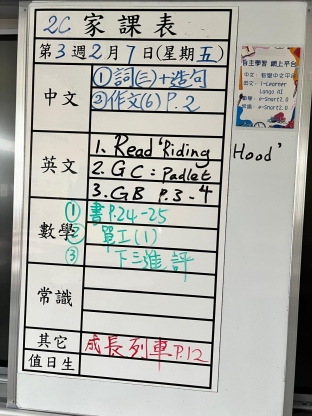 2C 家課表
第3週2月7日(星期五)
中文
①詞(三)+造句
②作文(6) P.2
英文
1. Read 'Riding Hood'
2. GC : Padlet
3. GB P.3-4
數學
① 書P.24-25
② 單工(1)
③ 下三進評
常識
其它
成長列車P.12
值日生
自主學習 網上平台